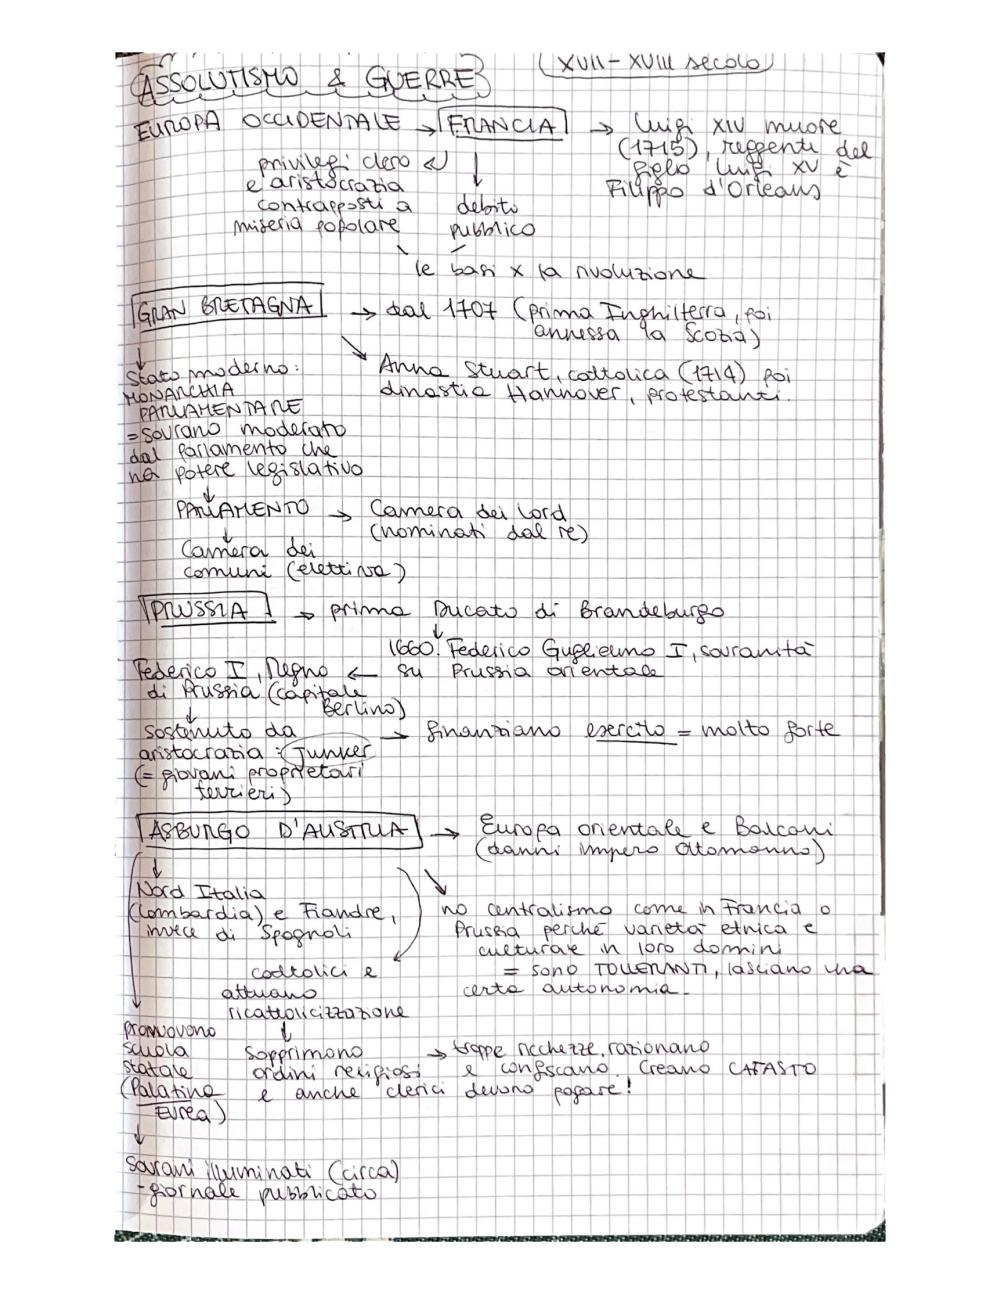 XVII - XVIII secolo
ASSOLUTISMO & GUERRE
EUROPA OCCIDENTALE → FRANCIA → Luigi XIV muore
(1715), reggente del
figlio Luigi XV è
Filippo d'Orleans
privilegi clero
e aristocrazia
contrapposti a
miseria popolare
debito
pubblico
le basi x la rivoluzione
GRAN BRETAGNA → dal 1707 (prima Inghilterra, poi
annessa la Scozia)
Anna Stuart, cattolica (1714) poi
dinastia Hannover, protestanti.
Stato moderno:
MONARCHIA
PARLAMENTARE
= sovrano moderato
dal parlamento che
ha potere legislativo
PARLAMENTO → Camera dei Lord
(nominati dal re)
Camera dei
comuni (elettiva)
PRUSSIA → prima Ducato di Brandeburgo
1660: Federico Guglielmo I, sovranità
su Prussia orientale
Federico I, Regno ←
di Prussia (capitale
Berlino)
sostenuto da
aristocrazia: Junker
(= giovani proprietari
terrieri)
→ finanziano esercito = molto forte
ASBURGO D'AUSTRIA → Europa orientale e Balcani
(danni impero Ottomanno)
Nord Italia
(Lombardia) e Fiandre,
invece di Spagnoli
no centralismo come in Francia o
Prussia perché varietà etnica e
culturale in loro domini
= sono TOLLERANTI, lasciano una
certa autonomia.
cattolici e
attuano
ricattolicizzazione
promuovono
scuola
statale
(Palatina
EUrea)
sopprimono
ordini religiosi
→ troppe ricchezze, razionano
e confiscano. Creano CATASTO
e anche clerici devono pagare!
Sovrani illuminati (circa)
- giornale pubblicato